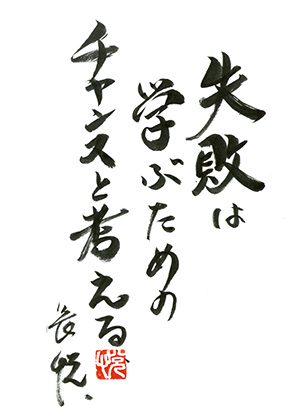 失敗は
学ぶための
チャンスと考える